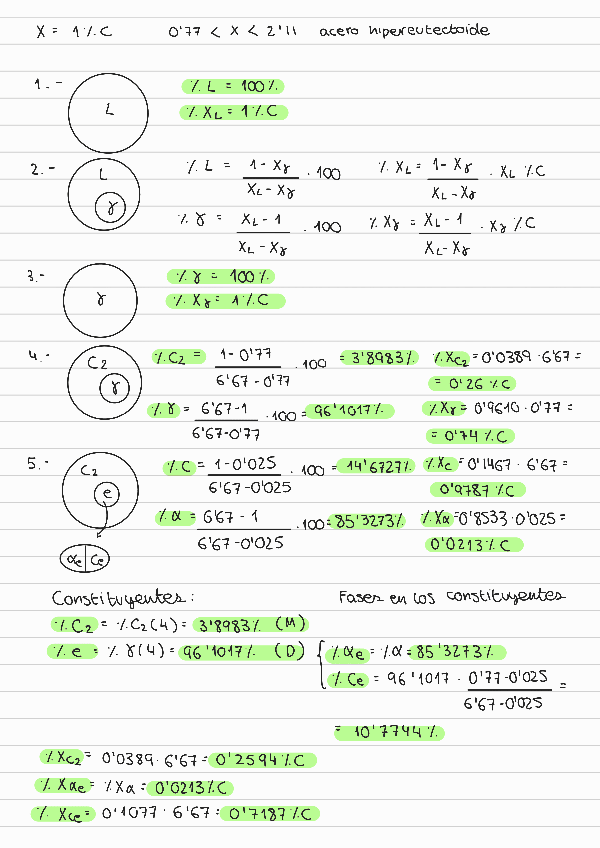 X = 1 % C 0'77 < X < 2'11 acero hipereutectoide
1.- L % L = 100 %
% XL = 1 % C
2.- L γ % L = (1 - Xγ)/(XL - Xγ) · 100 % XL = (1 - Xγ)/(XL - Xγ) · XL % C
% γ = (XL - 1)/(XL - Xγ) · 100 % Xγ = (XL - 1)/(XL - Xγ) · Xγ % C
3.- γ % γ = 100 %
% Xγ = 1 % C
4.- C2 γ % C2 = (1 - 0'77)/(6'67 - 0'77) · 100 = 3'8983 % % XC2 = 0'0389 · 6'67 =
= 0'26 % C
% γ = (6'67 - 1)/(6'67 - 0'77) · 100 = 96'1017 % % Xγ = 0'9610 · 0'77 =
= 0'74 % C
5.- C2 e % C = (1 - 0'025)/(6'67 - 0'025) · 100 = 14'6727 % % XC = 0'1467 · 6'67 =
0'9787 % C
% α = (6'67 - 1)/(6'67 - 0'025) · 100 = 85'3273 % % Xα = 0'8533 · 0'025 =
0'0213 % C
αe Ce
Constituyentes: Fases en los constituyentes
% C2 = % C2 (4) = 3'8983 % (M)
% e = % γ (4) = 96'1017 % (D) % αe = % α = 85'3273 %
% Ce = 96'1017 · (0'77 - 0'025)/(6'67 - 0'025) =
= 10'7744 %
% XC2 = 0'0389 · 6'67 = 0'2594 % C
% Xαe = % Xα = 0'0213 % C
% XCe = 0'1077 · 6'67 = 0'7187 % C